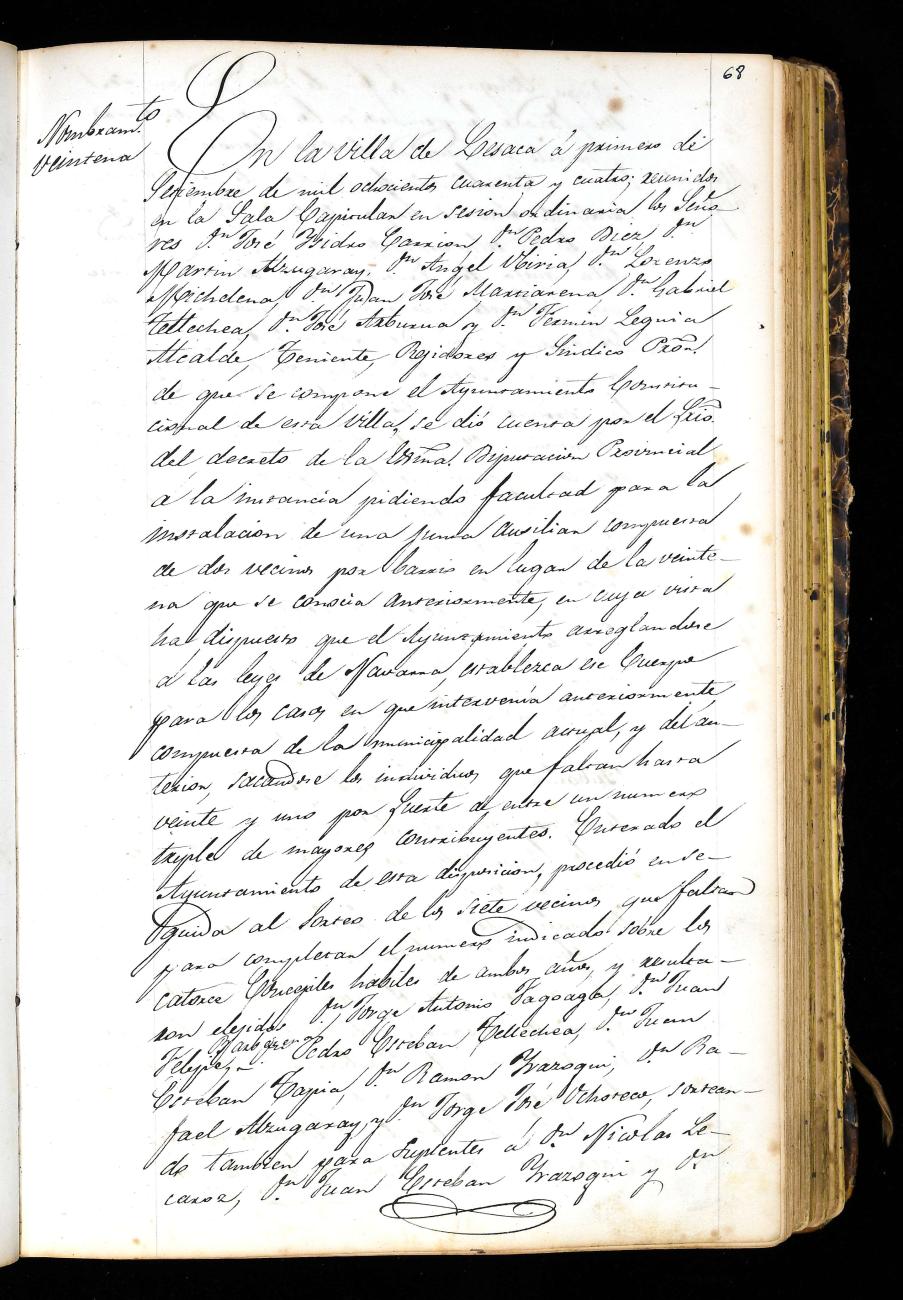 68
Nombram.to
Veintena
En la Villa de Lesaca á primero de
Setiembre de mil ochocientos cuarenta y cuatro; reunidos
en la Sala Capitular en sesion ordinaria los Seño-
res Dn José Ysidro Carrion Dn Pedro Diez, Dn
Martin Alzugaray, Dn Angel Vbiria, Dn Lorenzo
Michelena Dn Juan José Marciarena, Dn Gabriel
Tellechea, Dn José Arburua y Dn Fermin Leguia
Alcalde, Teniente, Rejidores y Sindico Pror.
de que se compone el Ayuntamiento Constitu-
cional de esta Villa, se dió cuenta por el Srio.
del decreto de la Escma. Diputacion Provincial
á la instancia pidiendo facultad para la
instalacion de una junta auxiliar compuesta
de dos vecinos por barrio en lugar de la veinte-
na que se conocia anteriormente, en cuya vista
ha dispuesto que el Ayuntamiento arreglandose
á las leyes de Navarra establezca ese Cuerpo
para los casos en que intervenia anteriormente
compuesta de la municipalidad actual, y del an-
terior, sacandose los individuos que faltan hasta
veinte y uno por suerte de entre un numero
triple de mayores contribuyentes. Enterado el
Ayuntamiento de esta disposicion, procedió en se-
guida al sorteo de los siete vecinos que faltan
para completar el numero indicado sobre los
catorce Concejales habiles de ambos años, y resulta-
ron elejidos Dn Jorge Antonio Fagoaga, Dn Juan
Felipe, Pedro Esteban Tellechea, Dn Juan
Esteban Tapia, Dn Ramon Yrazoqui, Dn Ra-
fael Alzugaray, y Dn Jorge José Ochoteco, sortean-
do tambien para suplentes á Dn Nicolas Le-
caroz, Dn Juan Esteban Yrazoqui y Dn